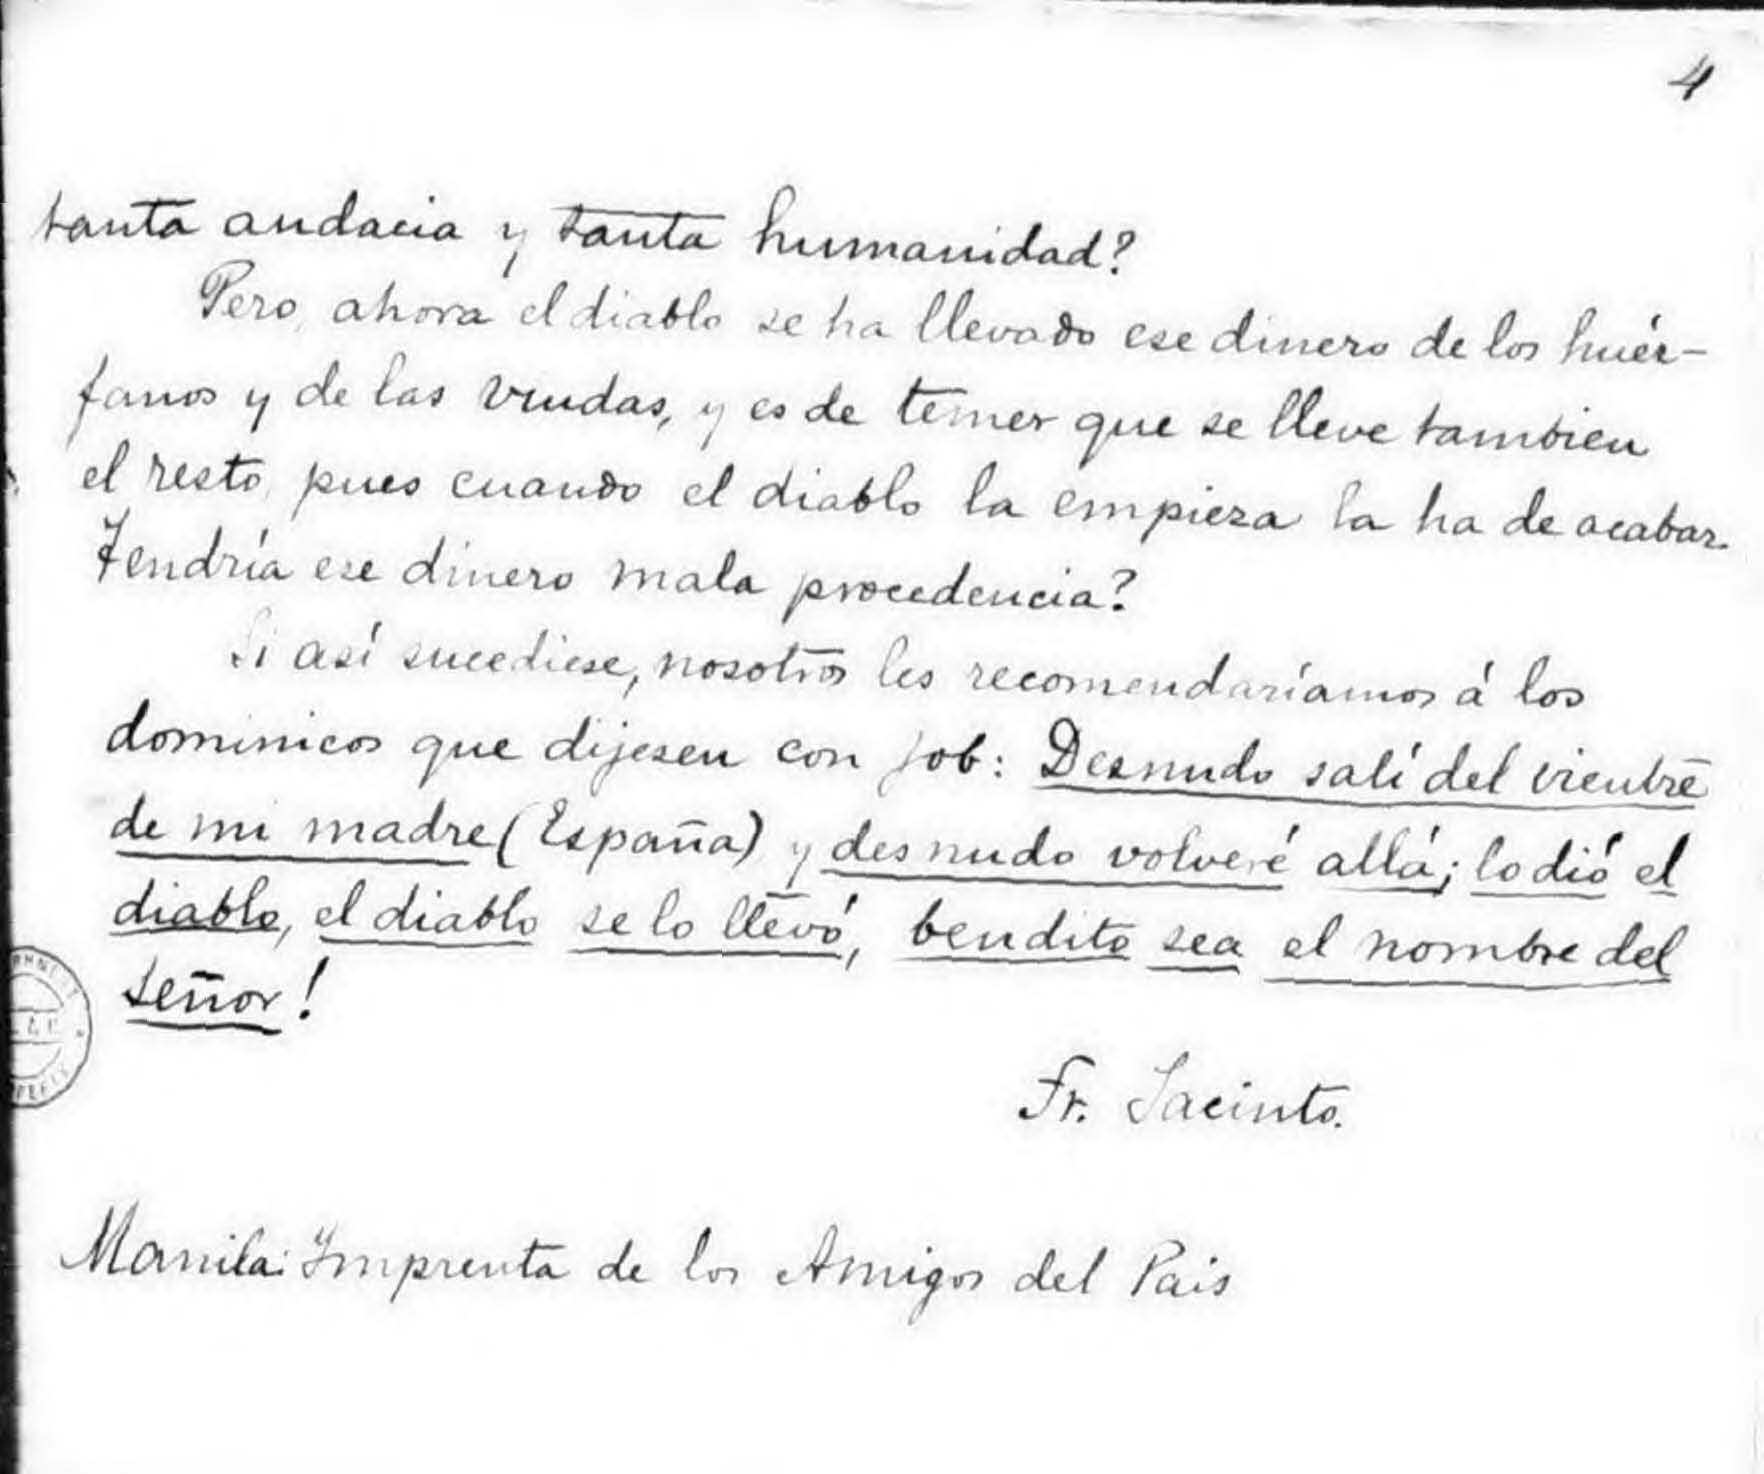 4
tanta audacia y tanta humanidad?
Pero, ahora el diablo se ha llevado ese dinero de los huér-
fanos y de las viudas, y es de temer que se lleve tambien
el resto, pues cuando el diablo la empieza la ha de acabar.
Tendría ese dinero mala procedencia?
Si así sucediese, nosotros les recomendaríamos á los
dominicos que dijesen con Job: Desnudo salí del vientre
de mi madre (España) y desnudo volveré allá; lo dió el
diablo, el diablo se lo llevó, bendito sea el nombre del
Señor!
Fr. Jacinto.
Manila: Imprenta de los Amigos del Pais